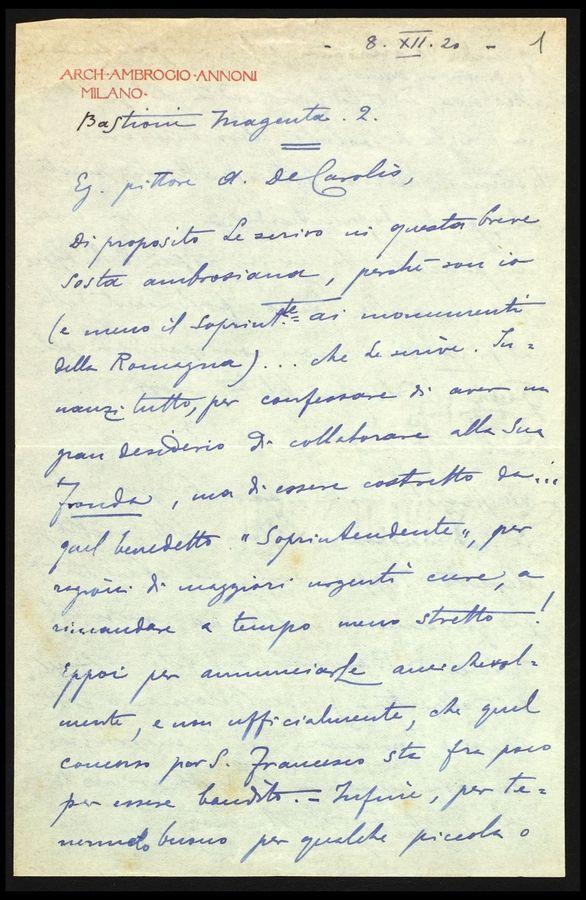 - 8. XII. 20 - 1
ARCH·AMBROGIO·ANNONI
MILANO·
Bastioni Magenta. 2.
Eg. pittore A. De Carolis,
Di proposito Le scrivo in questa breve
sosta ambrosiana, perché son io
(e meno il Soprint.te ai monumenti
della Romagna)... che Le scrive. In=
nanzi tutto, per confessare di aver un
gran desiderio di collaborare alla Sua
fronda, ma di essere costretto da...
quel benedetto "Soprintendente", per
ragioni di maggiori urgenti cure, a
rimandare a tempo meno stretto!
Eppoi per annunciarLe amichevol=
mente, e non ufficialmente, che quel
concorso per S. Francesco sta fra poco
per essere bandito. = Infine, per te=
nermelo buono per qualche piccola o